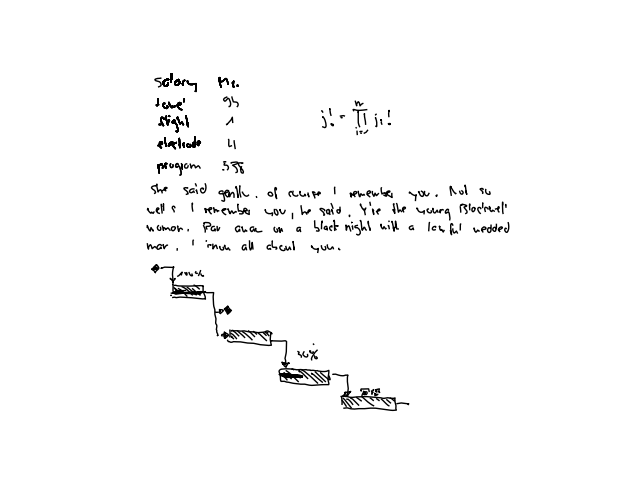 salary Mr.
94
flight 1
electrode 4
program 538
j! = ∏ i=1 n ji!
She said gently. Of course I remember you. Not so
well as I remember you, he said. You're the young Blackwell
woman. Ran away on a black night with a lawful wedded
man. I know all about you.
100%
30%